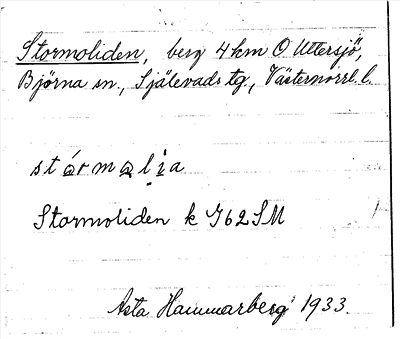 Stormoliden, berg 4 km O Uttersjö,
Björna sn., Själevads tg., Västernorrl. l.
stǻrmo̱li̱a
Stormoliden k J62SM
Asta Hammarberg 1933.